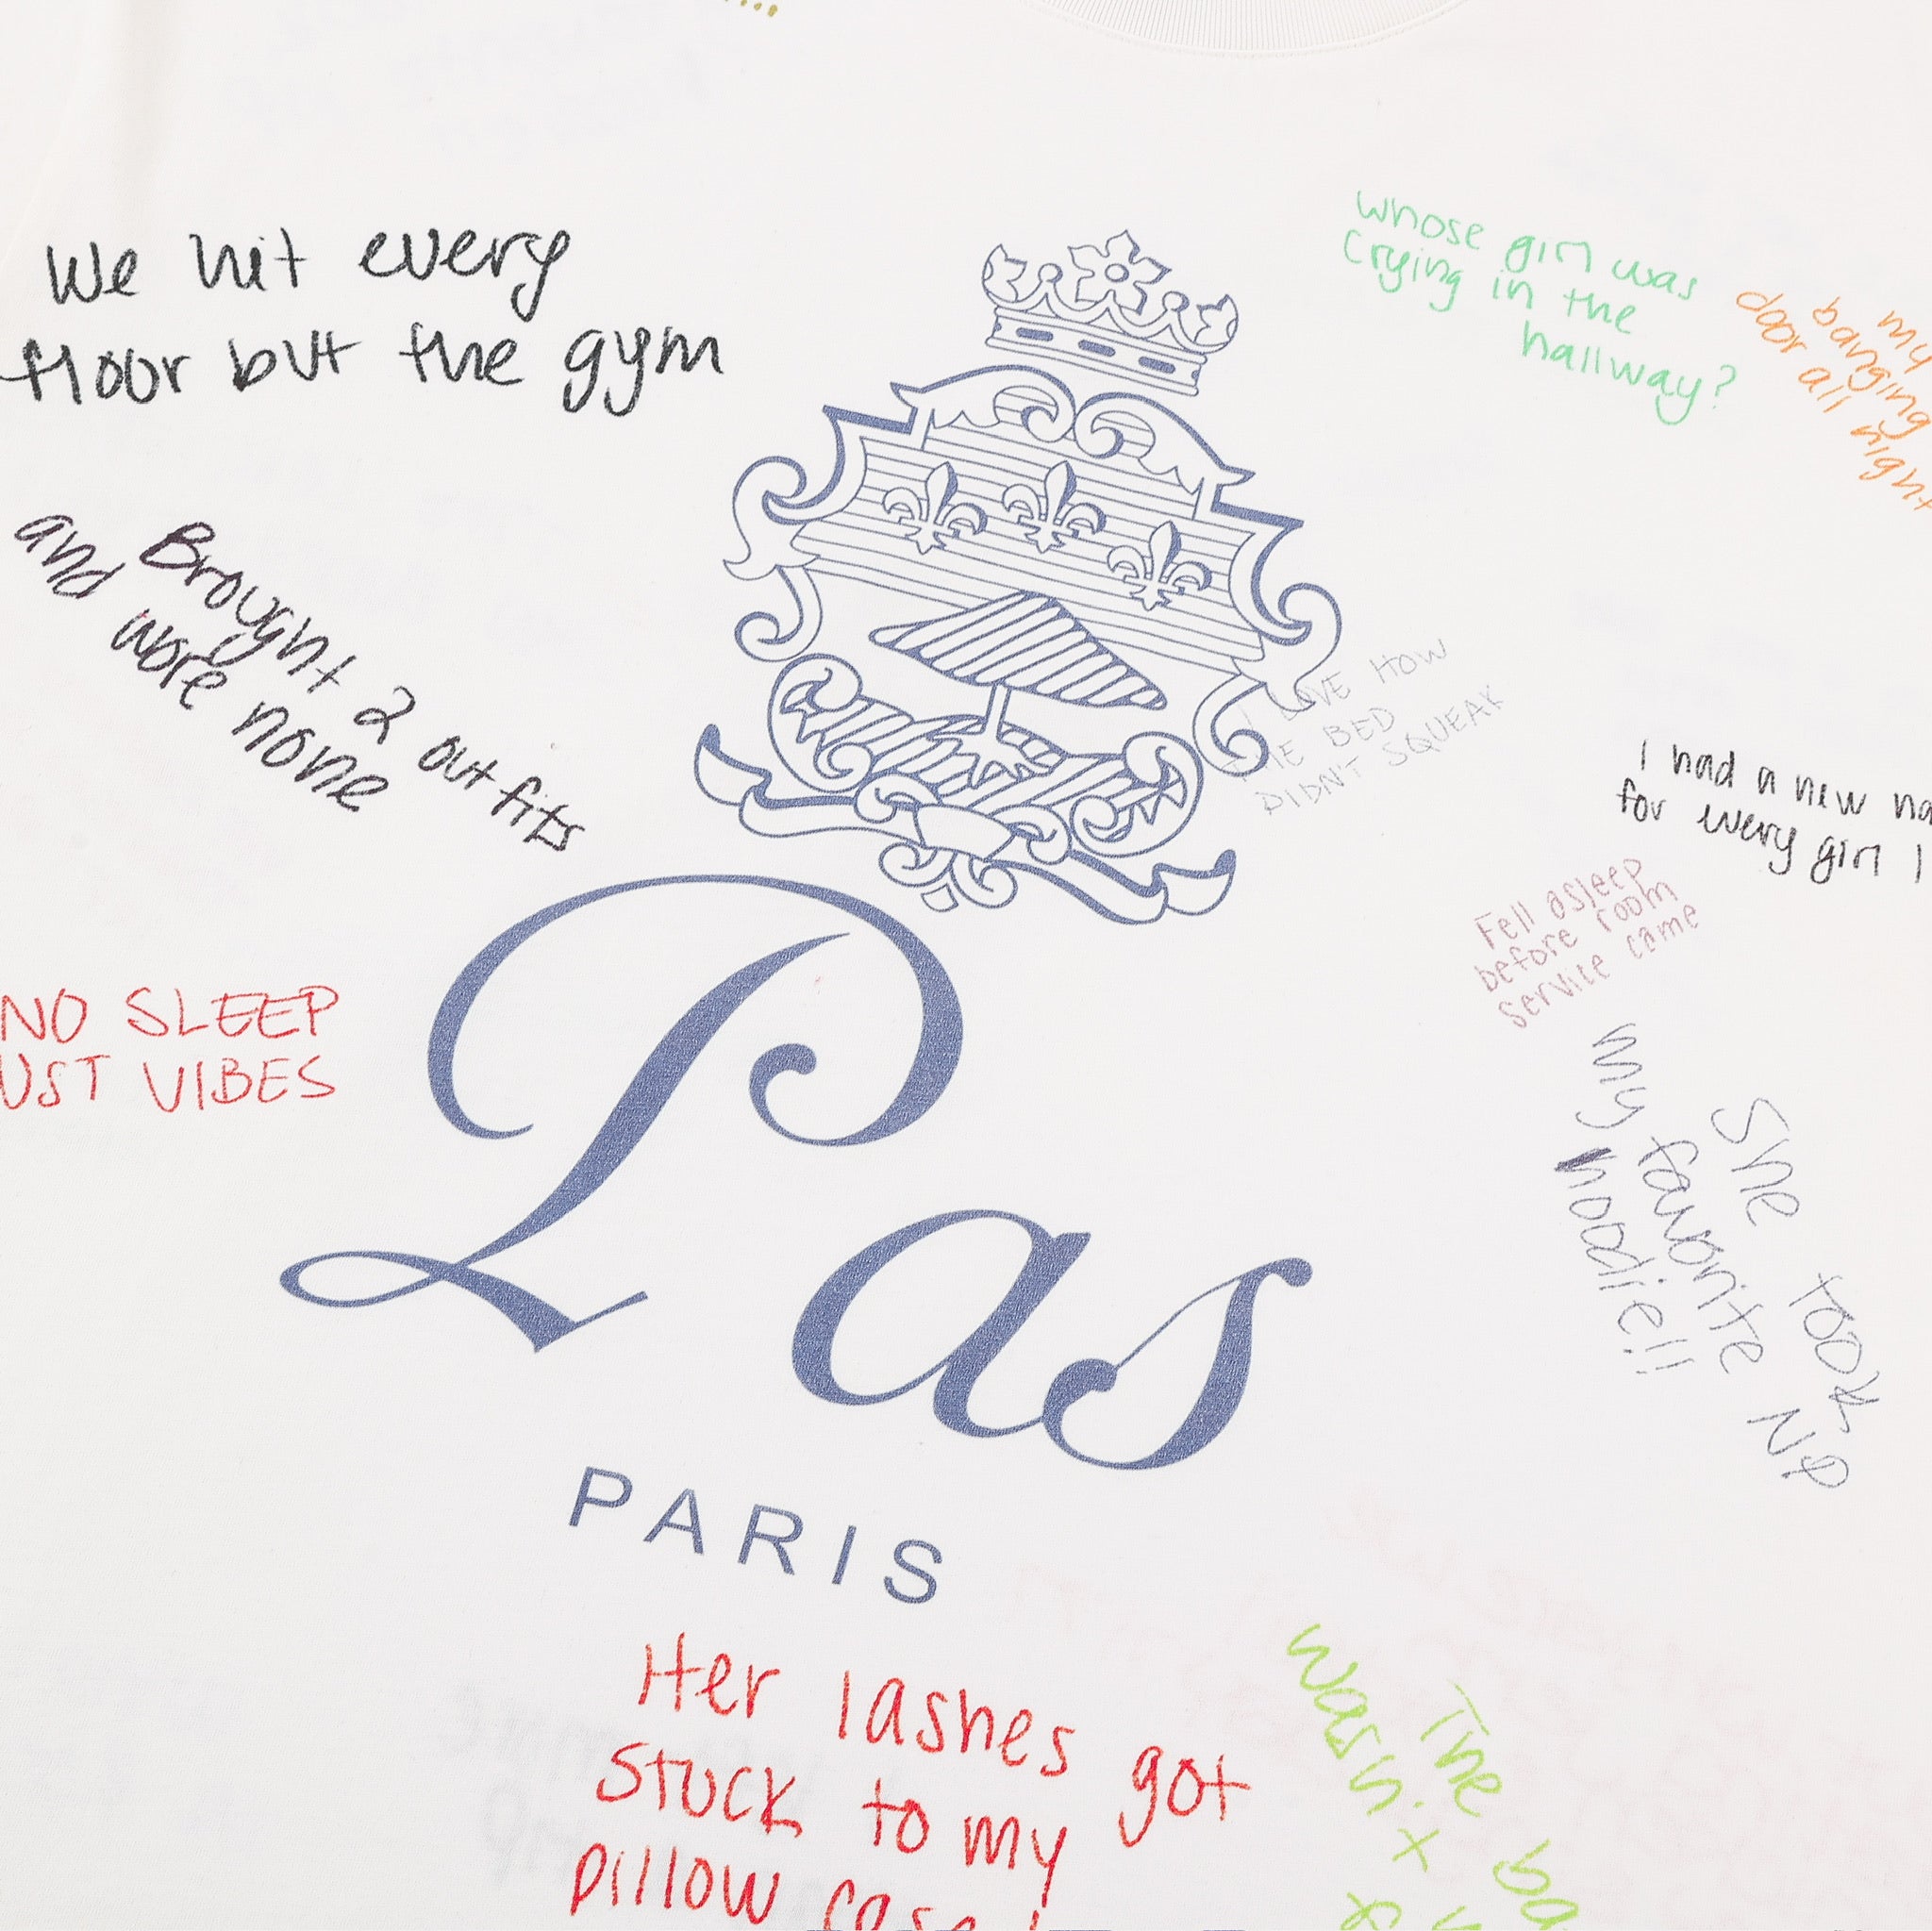 We hit every
floor but the gym
whose girl was
crying in the
hallway?
my
banging
door all night
Brought 2 outfits
and wore none
I LOVE HOW
THE BED
DIDN'T SQUEAK
I had a new
for every girl I
Fell asleep
before room
service came
NO SLEEP
UST VIBES
She took
my favorite
hoodie!!
ND
Pas
PARIS
Her lashes got
stuck to my
pillow case!
The ba
wasn't